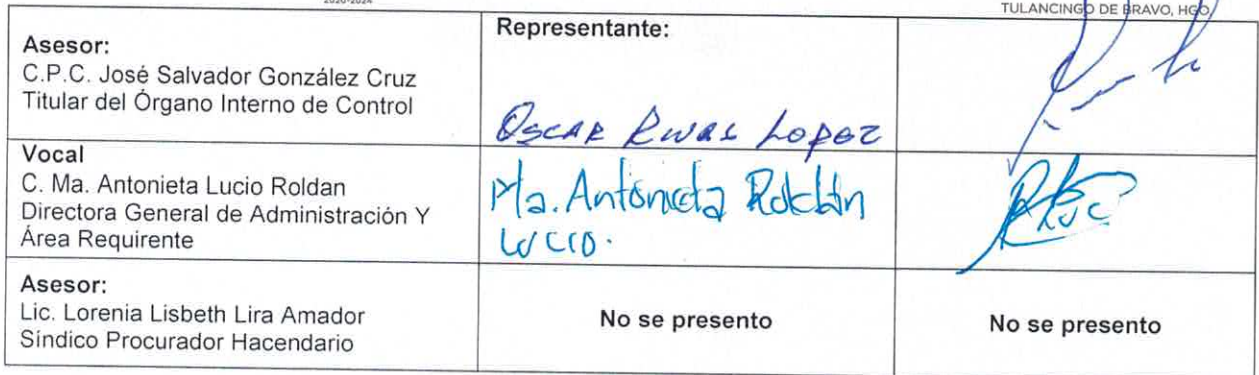 2020-2024
TULANCINGO DE BRAVO, HGO
Asesor:
C.P.C. José Salvador González Cruz
Titular del Órgano Interno de Control
Representante:
Oscar Rivas Lopez
Vocal
C. Ma. Antonieta Lucio Roldan
Directora General de Administración Y
Área Requirente
Ma. Antonieta Roldán
Lucio.
Asesor:
Lic. Lorenia Lisbeth Lira Amador
Síndico Procurador Hacendario
No se presento
No se presento